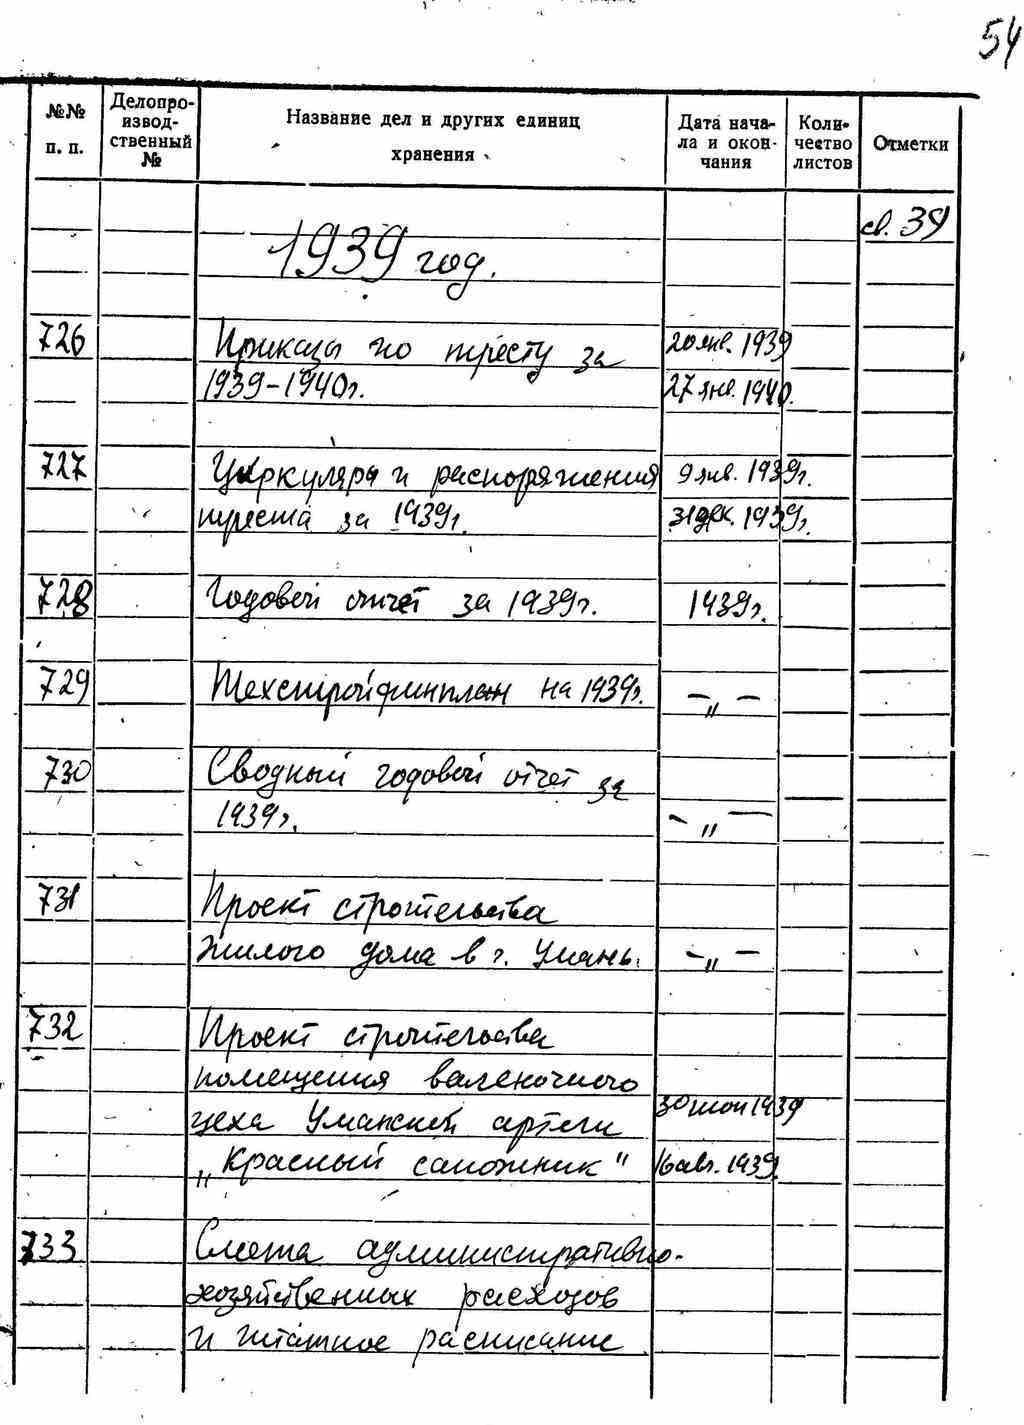 54
№№ п. п.
Делопро-
извод-
ственный
№
Название дел и других единиц
хранения
Дата нача-
ла и окон-
чания
Коли-
чество
листов
Отметки
св. 39
1939 год.
726 Приказы по тресту за 20 янв. 1939
1939-1940г. 27 янв. 1940.
727 Циркуляры и распоряжения 9 янв. 1939г.
треста за 1939г. 31 дек. 1939г.
728 Годовой отчет за 1939г. 1939г.
729 Техстройфинплан на 1939г. -„-
730 Сводный годовой отчет за
1939г. -„-
731 Проект строительства
жилого дома в г. Умань. -„-
732 Проект строительства
помещения валеночного
цеха Уманской артели 30 июн 1939
„Красный сапожник" 16 авг. 1939
733 Смета административно-
хозяйственных расходов
и штатное расписание